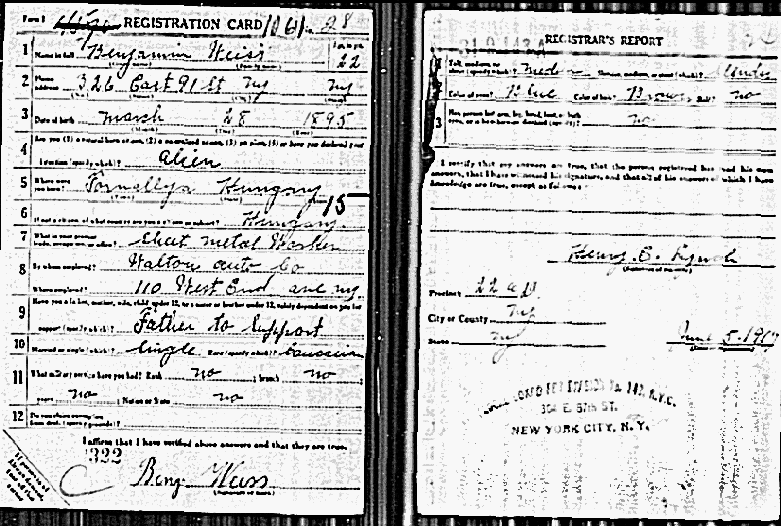 Form 1 REGISTRATION CARD
1 Name in full Benjamin Weiss Age, in yrs. 22
2 Home address 326 East 91 St NY NY
3 Date of birth March 28 1895
4 Are you (1) a natural born citizen, (2) a naturalized citizen, (3) an alien, (4) or have you declared your
intention (specify which)? alien
5 Where were you born? Hungary
15
6 If not a citizen, of what country are you a citizen or subject? Hungary
7 What is your present trade, occupation, or office? Sheet metal Worker
8 By whom employed? Walton Auto Co
Where employed? 110 West End Ave NY.
9 Have you a father, mother, wife, child under 12, or a sister or brother under 12, solely dependent on you for
support (specify which)? Father to Support
10 Married or single (which)? Single Race (specify which)? Caucasian
11 What military service have you had? Rank no ; branch no
years no ; Nation or State no
12 Do you claim exemption from draft (specify grounds)?
I affirm that I have verified above answers and that they are true.
322
Benj Weiss
REGISTRAR'S REPORT
1 Tall, medium, or short (specify which)? Medium Slender, medium, or stout (which)? Slender
2 Color of eyes? Blue Color of hair? Brown Bald? no
3 Has person lost arm, leg, hand, foot, or both eyes, or is he otherwise disabled (specify)? no
I certify that my answers are true, that the person registered has read his own
answers, that I have witnessed his signature, and that all of his answers of which I have
knowledge are true, except as follows:
Henry B. Lynch
Precinct 22 AD
City or County NY
State NY June 5-1917
LOCAL BOARD FOR DIVISION No. 140, N.Y.C.
NEW YORK CITY, N. Y.